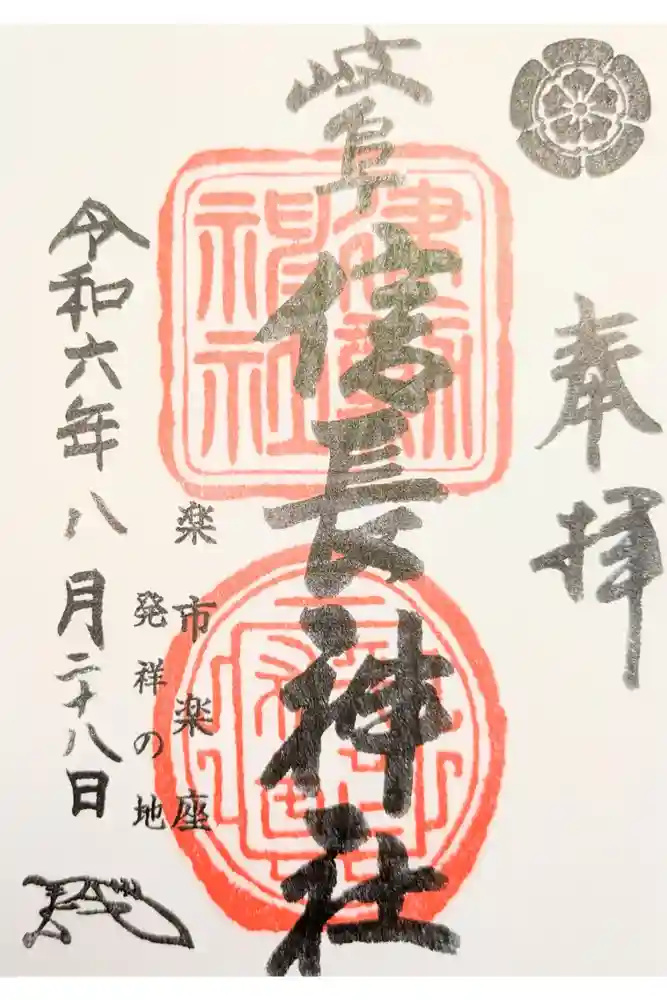 奉拝
岐阜
信長神社
建勲
神社
楽市楽座
発祥の地
令和六年八月二十八日